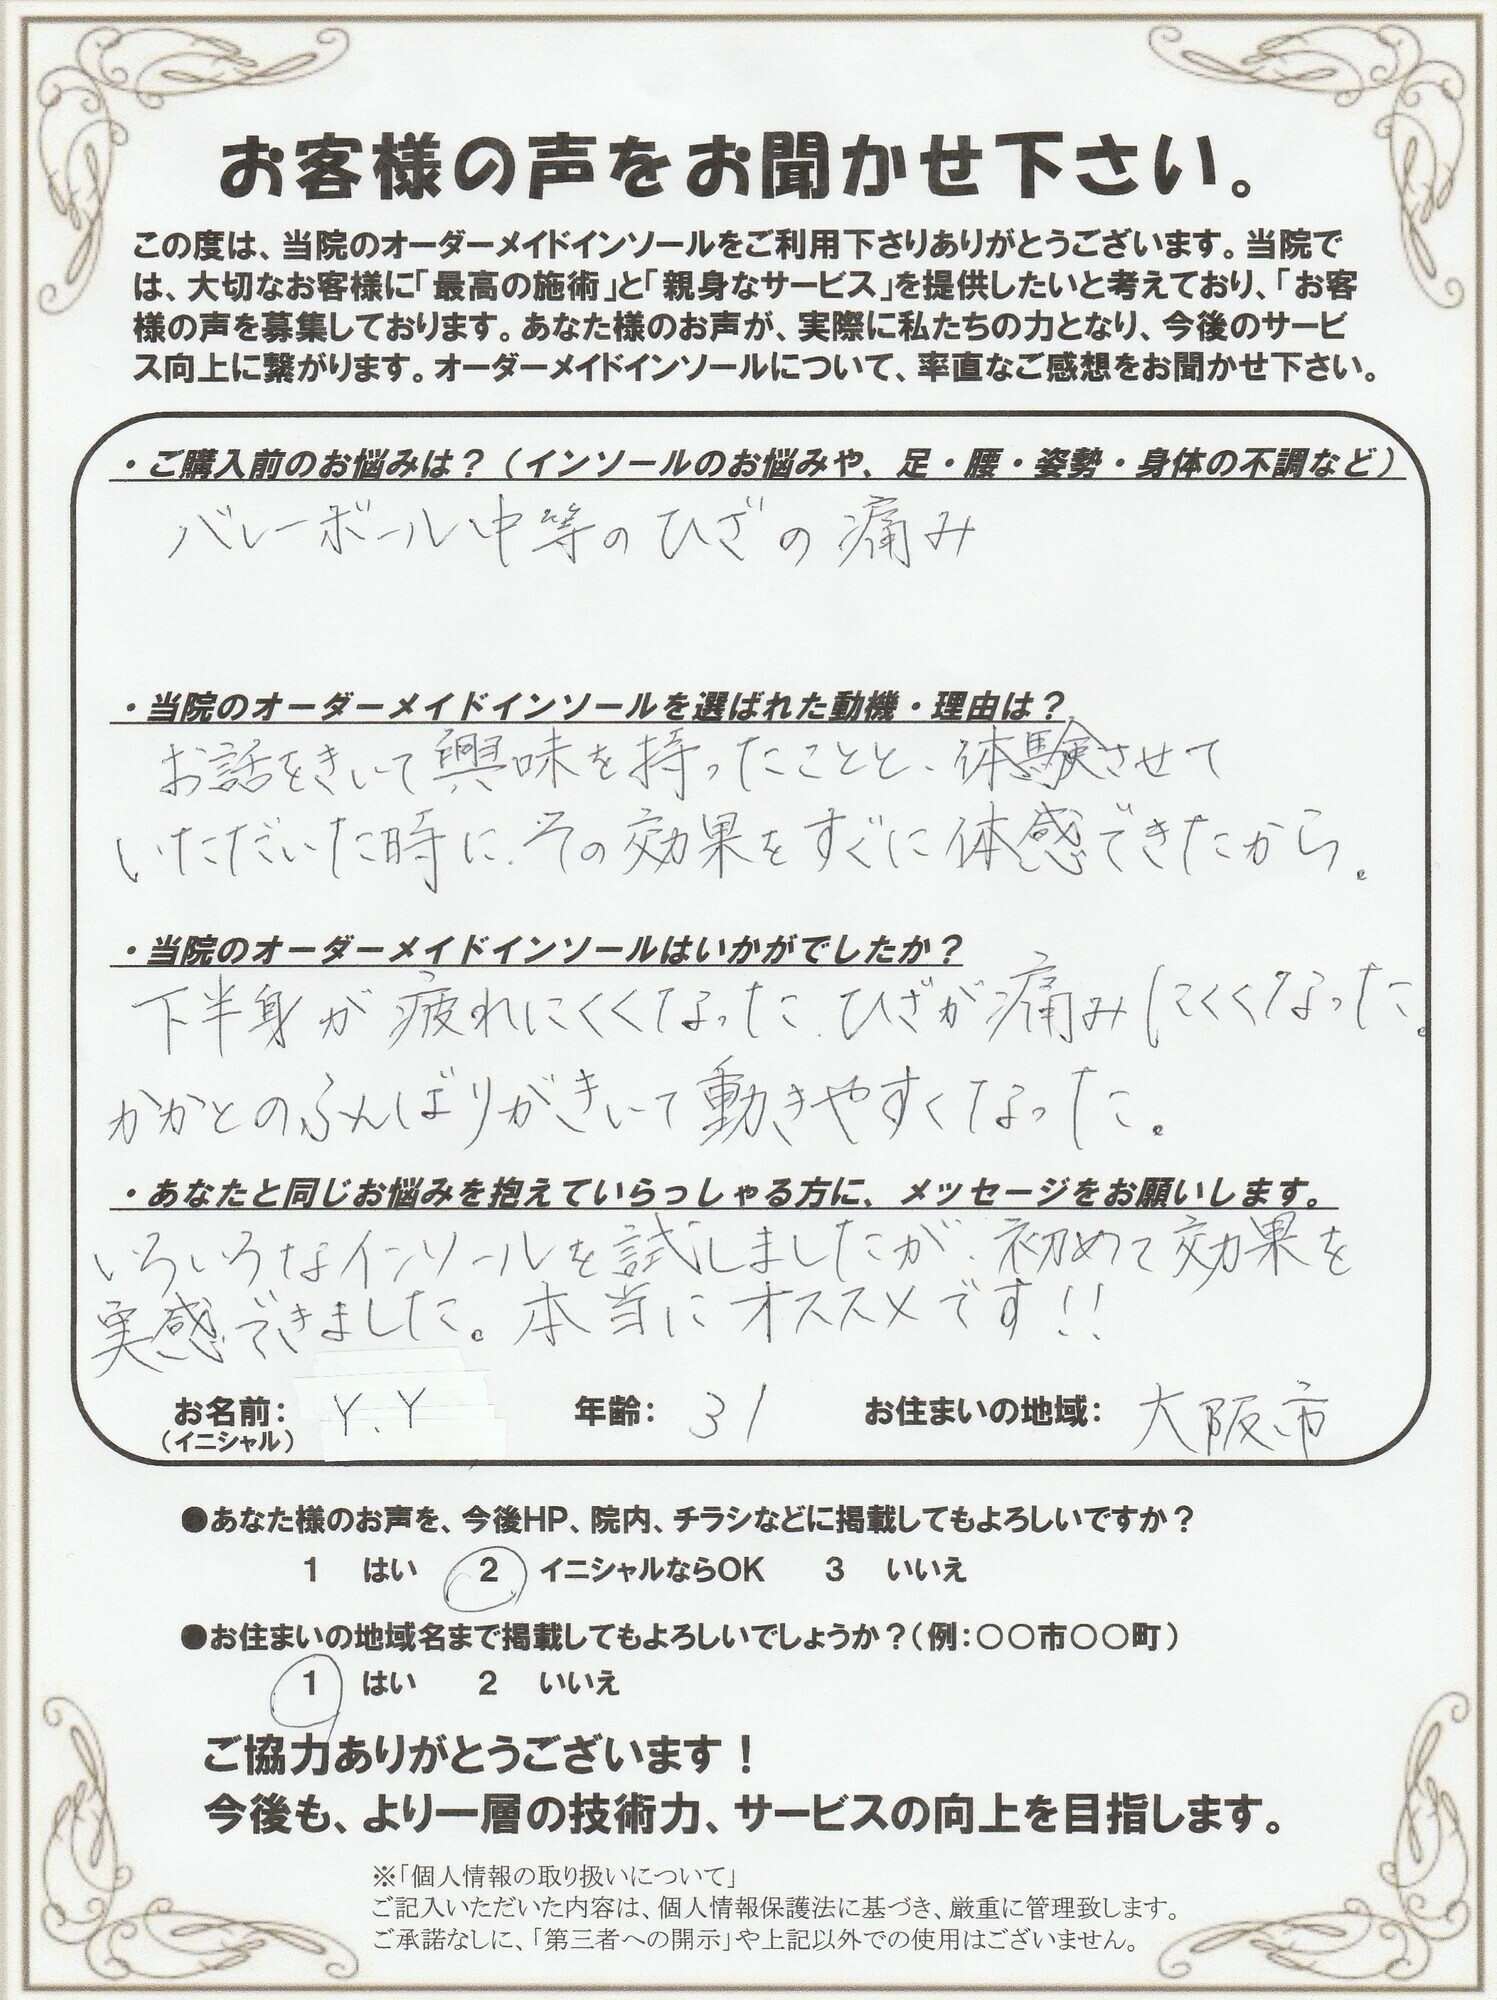 お客様の声をお聞かせ下さい。
この度は、当院のオーダーメイドインソールをご利用下さりありがとうございます。当院で
は、大切なお客様に「最高の施術」と「親身なサービス」を提供したいと考えており、「お客
様の声を募集しております。あなた様のお声が、実際に私たちの力となり、今後のサービ
ス向上に繋がります。オーダーメイドインソールについて、率直なご感想をお聞かせ下さい。
・ご購入前のお悩みは?(インソールのお悩みや、足・腰・姿勢・身体の不調など)
バレーボール中等のひざの痛み
・当院のオーダーメイドインソールを選ばれた動機・理由は?
お話をきいて興味を持ったことと、体験させて
いただいた時に、その効果をすぐに体感できたから。
・当院のオーダーメイドインソールはいかがでしたか?
下半身が疲れにくくなった、ひざが痛みにくくなった。
かかとのふんばりがきいて動きやすくなった。
・あなたと同じお悩みを抱えていらっしゃる方に、メッセージをお願いします。
いろいろなインソールを試しましたが、初めて効果を
実感できました。本当にオススメです!!
お名前: Y.Y 年齢: 31 お住まいの地域: 大阪市
(イニシャル)
●あなた様のお声を、今後HP、院内、チラシなどに掲載してもよろしいですか?
1 はい 2 イニシャルならOK 3 いいえ
●お住まいの地域名まで掲載してもよろしいでしょうか?(例:○○市○○町)
1 はい 2 いいえ
ご協力ありがとうございます!
今後も、より一層の技術力、サービスの向上を目指します。
※「個人情報の取り扱いについて」
ご記入いただいた内容は、個人情報保護法に基づき、厳重に管理致します。
ご承諾なしに、「第三者への開示」や上記以外での使用はございません。